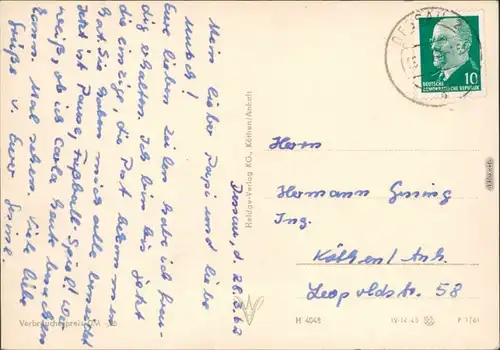 Dessau, d. 28.6.62
Mein lieber Papi und liebe
Mutsch!
Eure lieben Zeilen habe ich freu-
dig erhalten. Ich bin bis jetzt
die einzige, die Post bekommen
hat. Sie haben mich alle beneidet
Jetzt ist Pause, Fußball-Spiel! Wer
weiß, ob ich Carla heute besuchen
kann. Mal sehen. Viele liebe
Grüße v. Eurer
Heldge-Verlag KG., Köthen/Anhalt
Verbraucherpreis DM
H 4048
IV-14-45
P 1/61
DESSAU
DEUTSCHE
DEMOKRATISCHE REPUBLIK
10
Herrn
Hermann
Ing.
Köthen/Anh.
Leopoldstr. 58